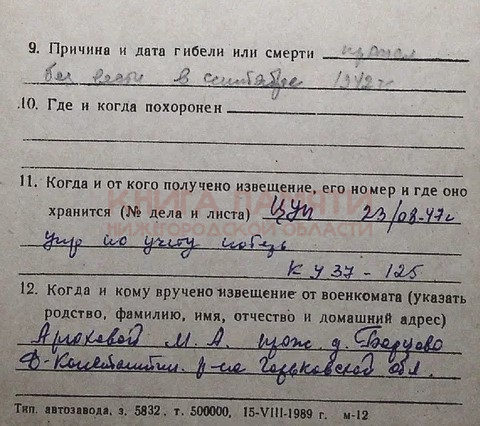 9. Причина и дата гибели или смерти пропал
без вести в сентябре 1942 г
10. Где и когда похоронен
11. Когда и от кого получено извещение, его номер и где оно
хранится (№ дела и листа) ЦУП 23/08-47г
упр по учету потерь
К У 37 - 125
12. Когда и кому вручено извещение от военкомата (указать
родство, фамилию, имя, отчество и домашний адрес)
М. А. прож д.
Д-Константин. р-на Горьковской обл.
Тип. автозавода, з. 5832, т. 500000, 15-VIII-1989 г. м-12
КНИГА ПАМЯТИ
НИЖЕГОРОДСКОЙ ОБЛАСТИ